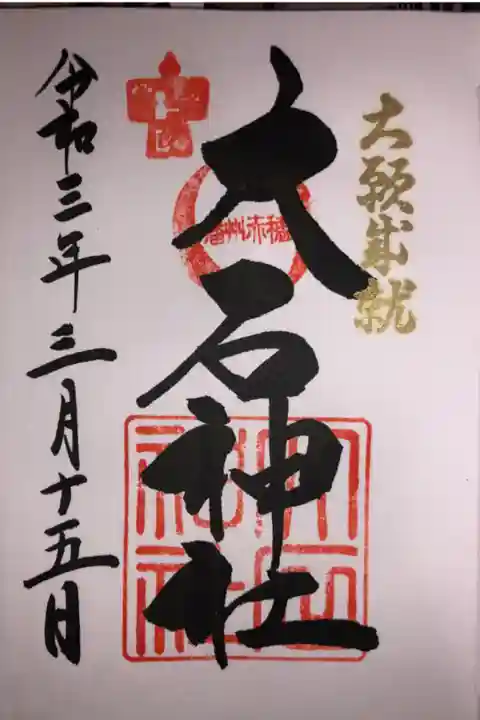 大願成就
大石神社
播州赤穂
大石神社
令和三年三月十五日